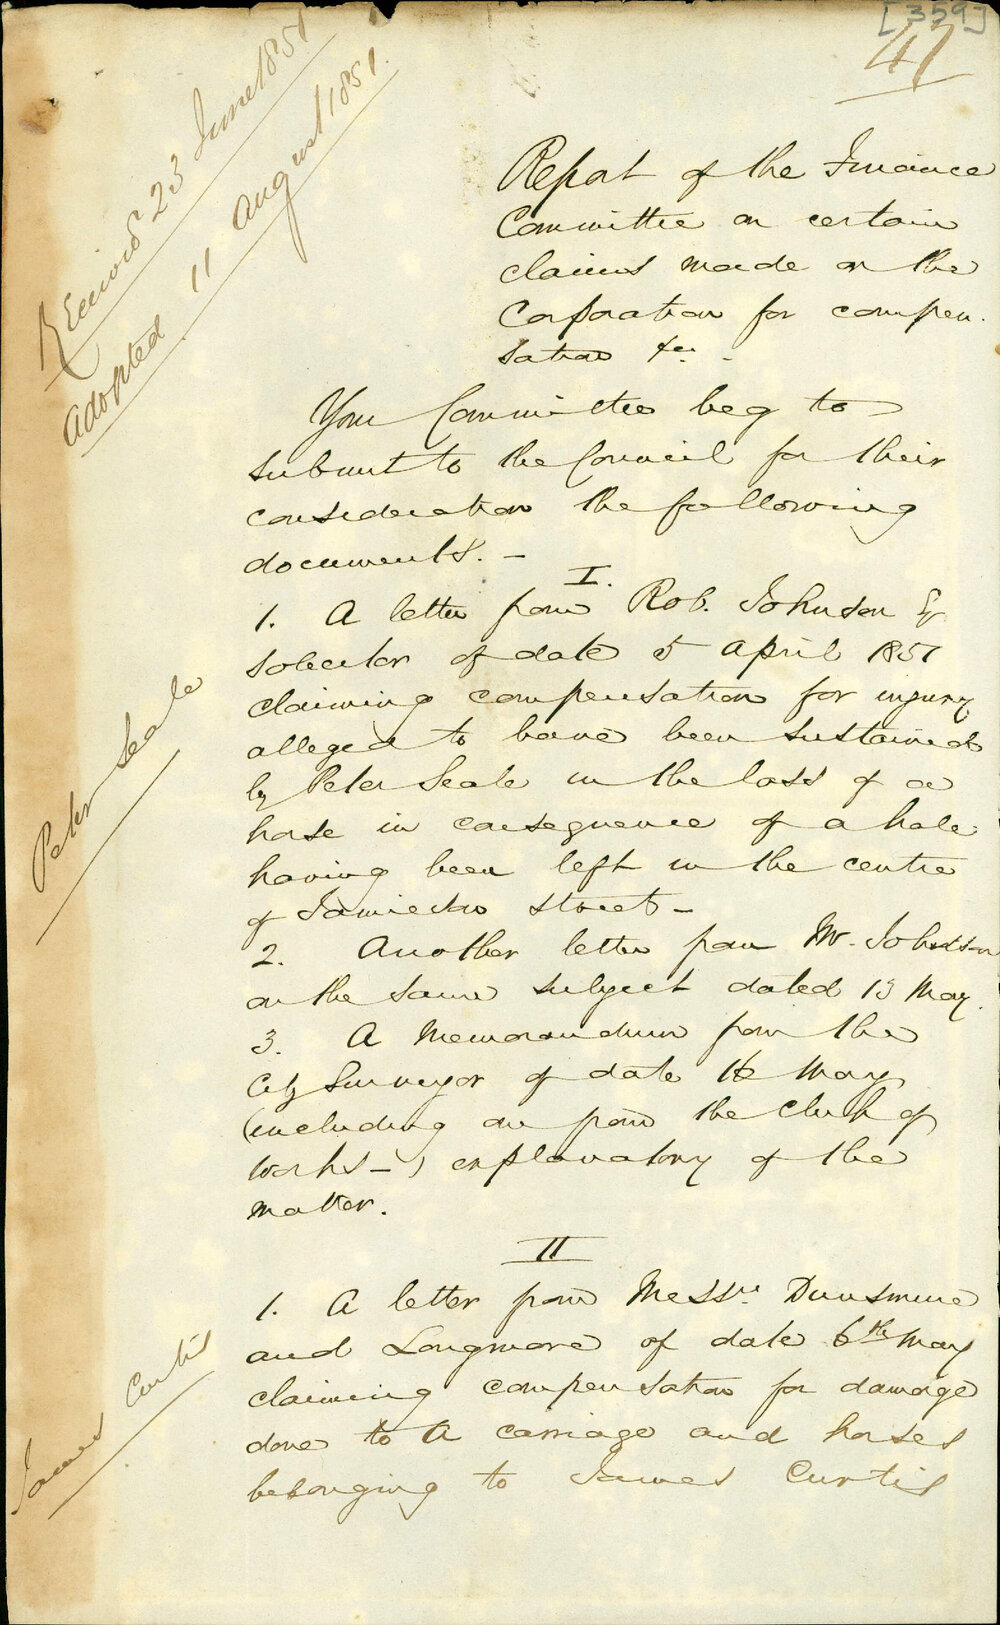 [359]
47
Received 23 June 1851
Adopted 11 August 1851.
Report of the Finance
Committee on certain
claims made on the
Corporation for compen-
sation &c. -
Your Committee beg to
submit to the Council for their
consideration the following
documents. -
I.
1. A letter from Rob. Johnson Esqr
Solicitor of date 5 April 1851
claiming compensation for injury
alleged to have been sustained
by Peter Seale in the loss of a
horse in consequence of a hole
having been left in the centre
of Jamieson Street -
Peter Seale
2. Another letter from Mr. Johnson
on the same subject dated 13 May.
3. A Memorandum from the
City Surveyor of date 16 May
(including one from the Clerk of
Works -) explanatory of the
matter.
II
1. A letter from Messrs. Dunsmure
and Longmore of date 6th May
claiming compensation for damage
done to a carriage and horses
belonging to James Curtis
James Curtis